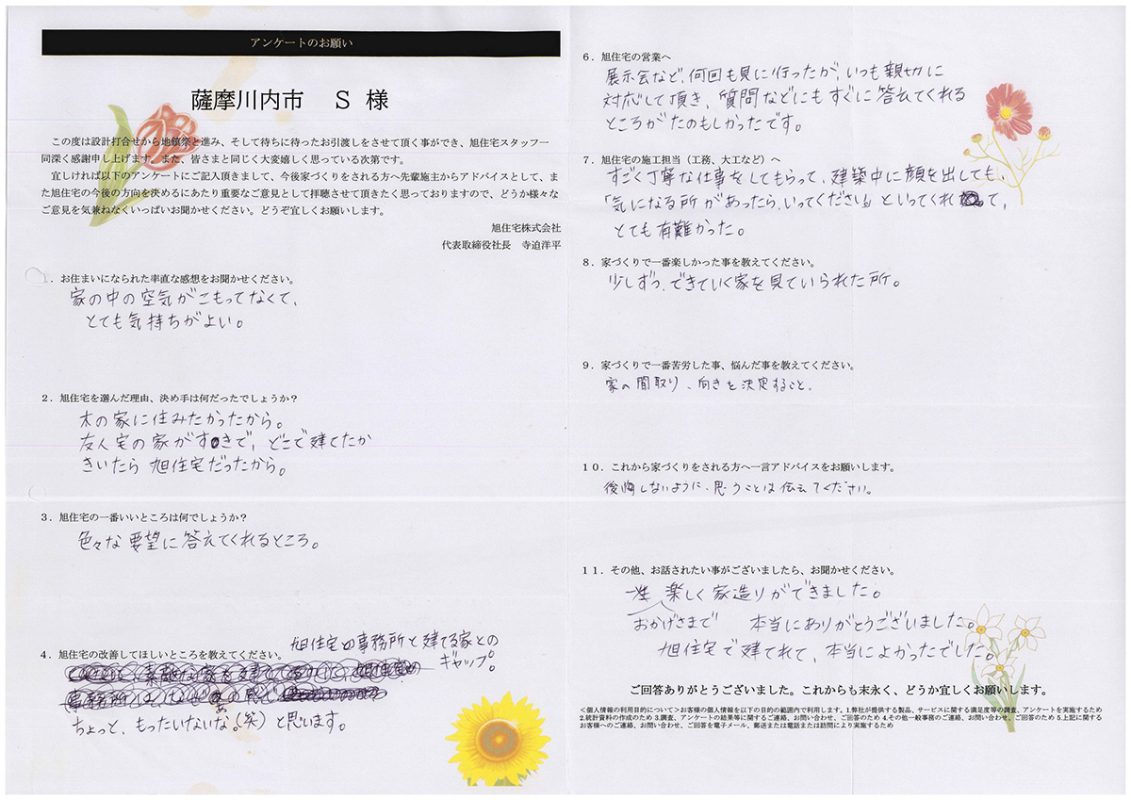 アンケートのお願い
薩摩川内市 S 様
この度は設計打合せから地鎮祭と進み、そして待ちに待ったお引渡しをさせて頂く事ができ、旭住宅スタッフ一
同深く感謝申し上げます。また、皆さまと同じく大変嬉しく思っている次第です。
宜しければ以下のアンケートにご記入頂きまして、今後家づくりをされる方へ先輩施主からアドバイスとして、ま
た旭住宅の今後の方向を決めるにあたり重要なご意見として拝聴させて頂きたく思っておりますので、どうか様々な
ご意見を気兼ねなくいっぱいお聞かせください。どうぞ宜しくお願いします。
旭住宅株式会社
代表取締役社長 寺迫洋平
1．お住まいになられた率直な感想をお聞かせください。
家の中の空気がこもってなくて、
とても気持ちがよい。
2．旭住宅を選んだ理由、決め手は何だったでしょうか？
木の家に住みたかったから。
友人宅の家がすきで、どこで建てたか
きいたら 旭住宅だったから。
3．旭住宅の一番いいところは何でしょうか？
色々な要望に答えてくれるところ。
4．旭住宅の改善してほしいところを教えてください。
旭住宅の事務所と建てる家との
ギャップ。
ちょっと、もったいないな(笑)と思います。
6．旭住宅の営業へ
展示会など、何回も見に行ったが、いつも親切に
対応して頂き、質問などにもすぐに答えてくれる
ところがたのもしかったです。
7．旭住宅の施工担当（工務、大工など）へ
すごく丁寧な仕事をしてもらって、建築中に顔を出しても、
「気になる所があったら、いってください」といってくれて、
とても有難かった。
8．家づくりで一番楽しかった事を教えてください。
少しずつ、できていく家を見ていられた所。
9．家づくりで一番苦労した事、悩んだ事を教えてください。
家の間取り、向きを決定すること。
10．これから家づくりをされる方へ一言アドバイスをお願いします。
後悔しないように、思うことは伝えてください。
11．その他、お話されたい事がございましたら、お聞かせください。
楽しく家造りができました。
おかげさまで 本当にありがとうございました。
旭住宅で建てれて、本当によかったでした。
ご回答ありがとうございました。これからも末永く、どうか宜しくお願いします。
＜個人情報の利用目的について＞お客様の個人情報を以下の目的の範囲内で利用します。1.弊社が提供する製品、サービスに関する満足度等の調査、アンケートを実施するため
2.統計資料の作成のため 3.調査、アンケートの結果等に関するご連絡、お問い合わせ、ご回答のため 4.その他一般事務のご連絡、お問い合わせ、ご回答のため 5.上記に関する
お客様へのご連絡、お問い合わせ、ご回答を電子メール、郵送または電話または訪問により実施するため